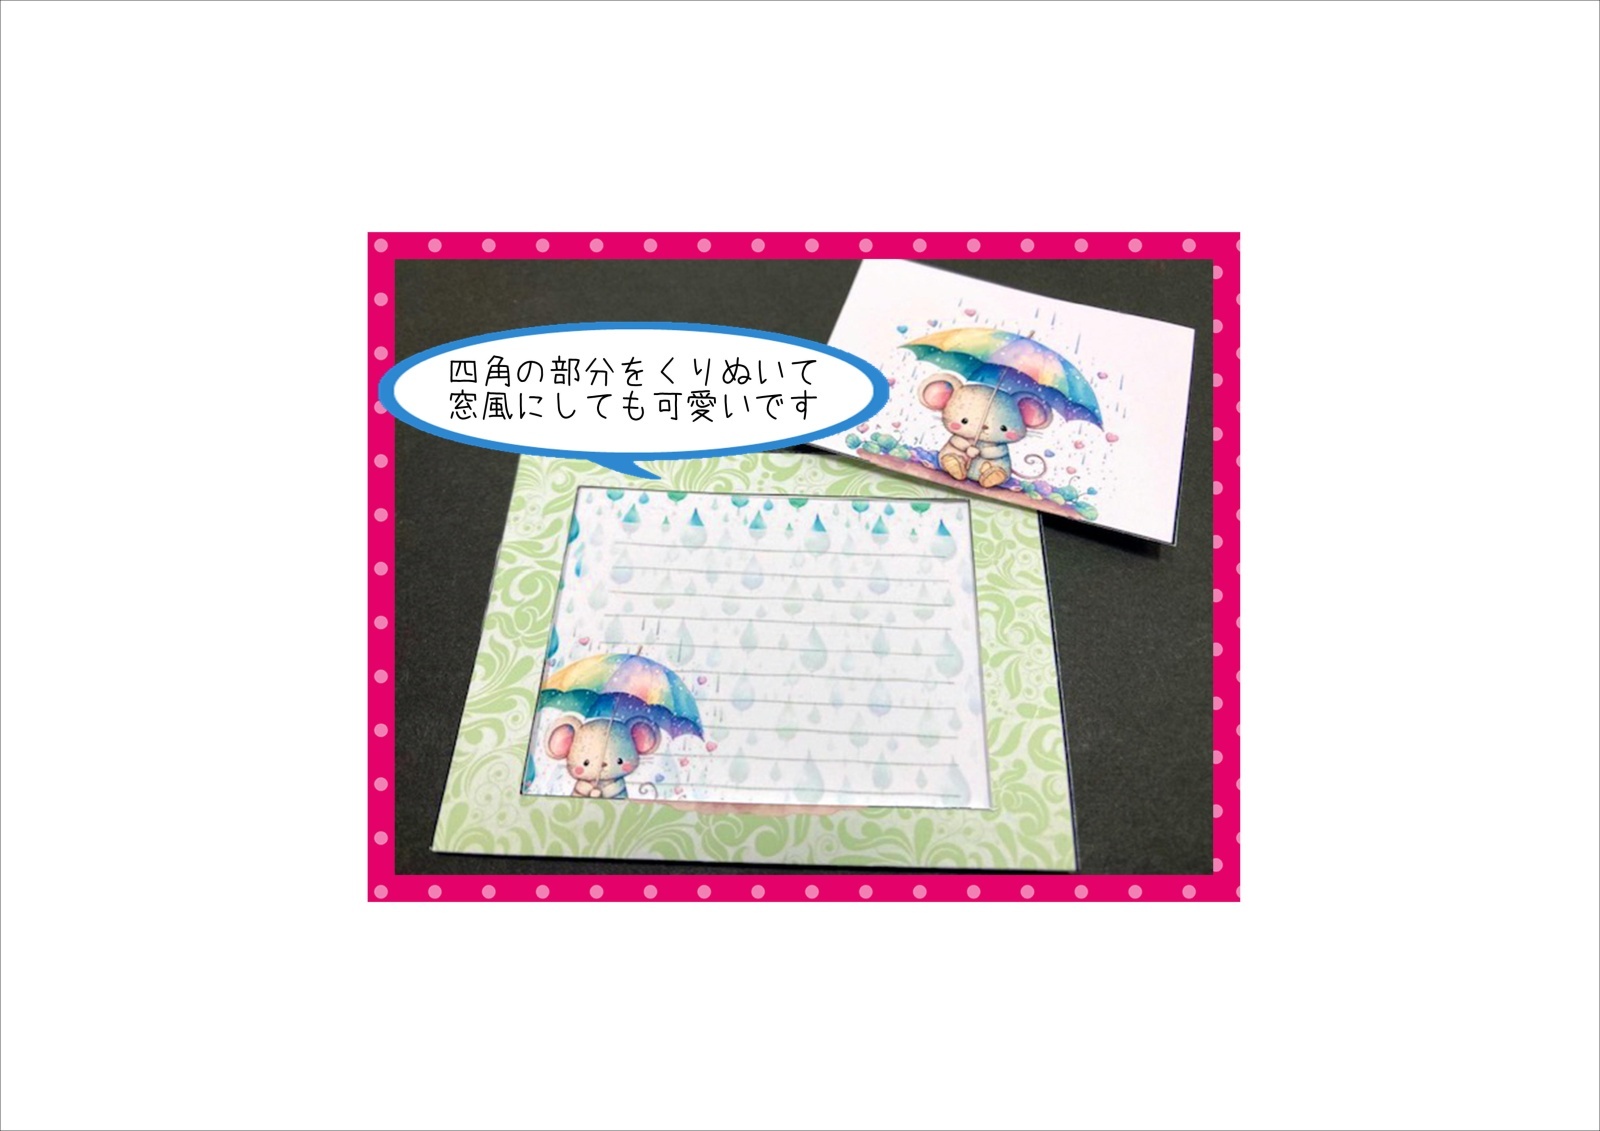 四角の部分をくりぬいて
窓風にしても可愛いです